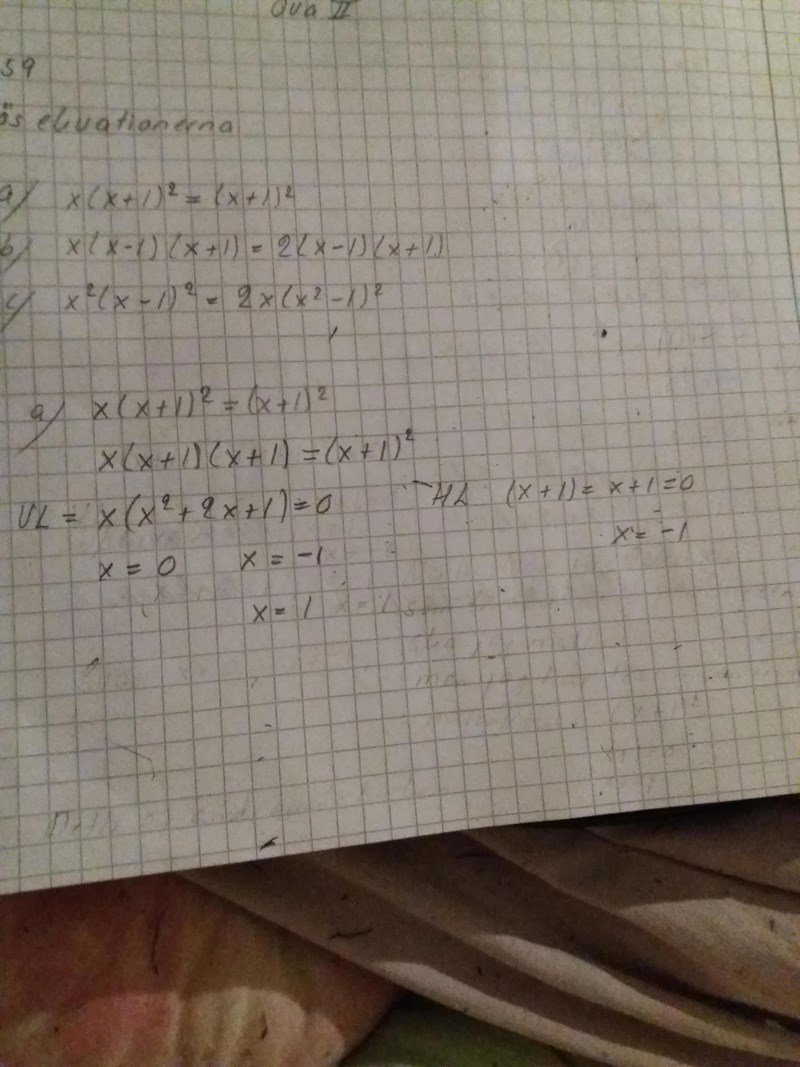 Öva II
59
ös ekvationerna
a) x(x+1)² = (x+1)²
b) x(x-1)(x+1) = 2(x-1)(x+1)
c) x²(x-1)² = 2x(x²-1)²
a) x(x+1)² = (x+1)²
x(x+1)(x+1) = (x+1)²
VL = x(x²+2x+1) = 0 HL (x+1) = x+1 = 0
x = 0 x = -1 x = -1
x = 1